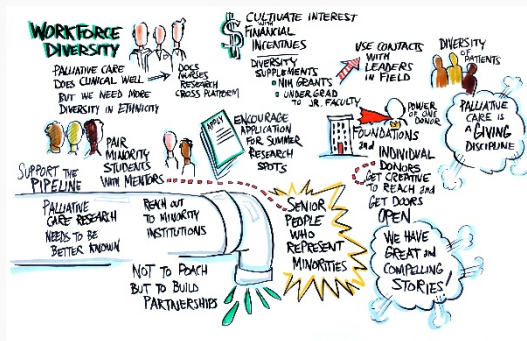 WORKFORCE
DIVERSITY
PALLIATIVE CARE
DOES CLINICAL WELL
BUT WE NEED MORE
DIVERSITY IN ETHNICITY
DOCS
NURSES
RESEARCH
CROSS PLATFORM
$ CULTIVATE INTEREST
WITH
FINANCIAL
INCENTIVES
DIVERSITY
SUPPLEMENTS
• NIH GRANTS
• UNDERGRAD
TO JR. FACULTY
USE CONTACTS
WITH
LEADERS
IN FIELD
DIVERSITY
OF
PATIENTS
PALLIATIVE
CARE IS
A GIVING
DISCIPLINE
PAIR
MINORITY
STUDENTS
WITH MENTORS
APPLY
ENCOURAGE
APPLICATION
FOR SUMMER
RESEARCH
SPOTS
POWER
OF ONE
DONOR
FOUNDATIONS
and
INDIVIDUAL
DONORS
GET CREATIVE
TO REACH and
GET DOORS
OPEN
SUPPORT THE
PIPELINE
PALLIATIVE
CARE RESEARCH
NEEDS TO BE
BETTER KNOWN
REACH OUT
TO MINORITY
INSTITUTIONS
NOT TO POACH
BUT TO BUILD
PARTNERSHIPS
SENIOR
PEOPLE
WHO
REPRESENT
MINORITIES
WE HAVE
GREAT and
COMPELLING
STORIES!